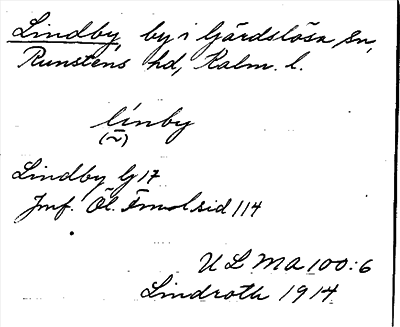 Lindby, by i Gärdslösa sn,
Runstens hd, Kalm. l.
línby
(~)
Lindby G 17
Jmf. Öl. Fmol sid 114
ULMA 100:6
Lindroth 1914